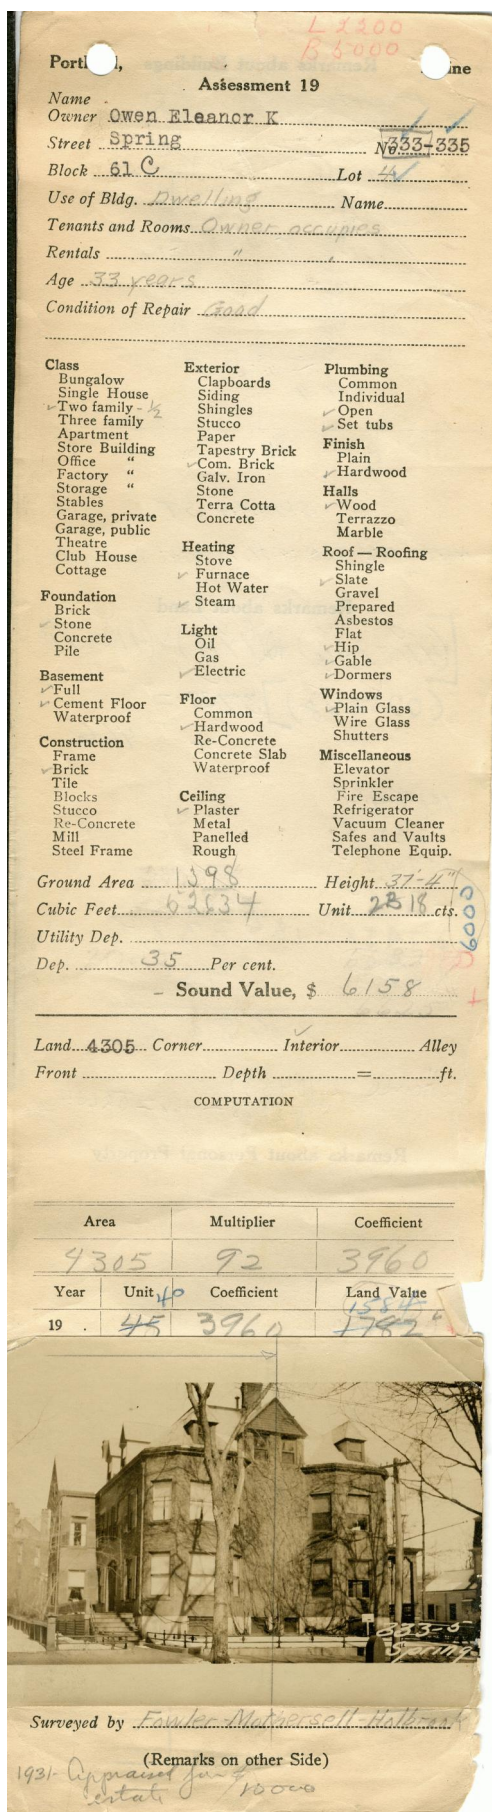 L 2200
B 5000
Portl d, ine
Assessment 19
Name
Owner Owen Eleanor K
Street Spring No. 333-335
Block 61 C Lot 4
Use of Bldg. Dwelling Name
Tenants and Rooms Owner occupies
Rentals "
Age 33 years
Condition of Repair Good
Class
Bungalow
Single House
Two family - 1/2
Three family
Apartment
Store Building
Office "
Factory "
Storage "
Stables
Garage, private
Garage, public
Theatre
Club House
Cottage
Foundation
Brick
Stone
Concrete
Pile
Basement
Full
Cement Floor
Waterproof
Construction
Frame
Brick
Tile
Blocks
Stucco
Re-Concrete
Mill
Steel Frame
Exterior
Clapboards
Siding
Shingles
Stucco
Paper
Tapestry Brick
Com. Brick
Galv. Iron
Stone
Terra Cotta
Concrete
Heating
Stove
Furnace
Hot Water
Steam
Light
Oil
Gas
Electric
Floor
Common
Hardwood
Re-Concrete
Concrete Slab
Waterproof
Ceiling
Plaster
Metal
Panelled
Rough
Plumbing
Common
Individual
Open
Set tubs
Finish
Plain
Hardwood
Halls
Wood
Terrazzo
Marble
Roof — Roofing
Shingle
Slate
Gravel
Prepared
Asbestos
Flat
Hip
Gable
Dormers
Windows
Plain Glass
Wire Glass
Shutters
Miscellaneous
Elevator
Sprinkler
Fire Escape
Refrigerator
Vacuum Cleaner
Safes and Vaults
Telephone Equip.
Ground Area 1398 Height 37'-4"
Cubic Feet 52634 Unit 18 cts.
6000
Utility Dep.
Dep. 35 Per cent.
Sound Value, $ 6158
Land 4305 Corner Interior Alley
Front Depth = ft.
COMPUTATION
Area Multiplier Coefficient
4305 92 3960
Year Unit 40 Coefficient Land Value
1584
19 45 3960 1782
333-5
Spring
Surveyed by Fowler-Mothersell-Holbrook
(Remarks on other Side)
1931- Appraised for
estate 10000